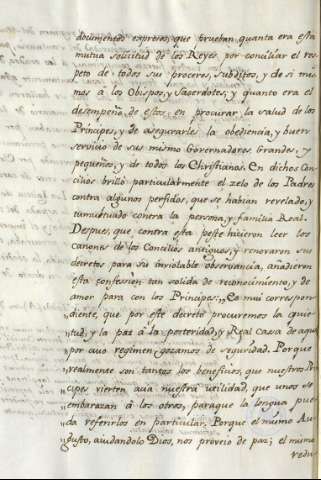 documentos expresos, que prueban quanta era esta
mutua solicitud de los Reyes por conciliar el res-
peto de todos sus proceres, subditos, y de si mis-
mos à los Obispos, y Sacerdotes; y quanto era el
desempeño, de estos, en procurar la salud de los
Principes, y de asegurarles la obediencia, y buen
servicio de sus mismo Governadores Grandes, y
pequeños, y de todos los Christianos. En dichos Con-
cilios brilló particularmente el zelo de los Padres
contra algunos perfidos, que se habian revelado, y
tumultuado contra la persona, y familia Real.
Despues, que contra esta peste hicieron leer los
canones de los Concilios antiguos, y renovaron sus
decretos para su inviolable observancia, añadieron
esta confesion tan solida de reconocimiento, y de
amor para con los Principes: „Es mui correspon-
„diente, que por este decreto procuremos la quie-
„tud, y la paz à la posteridad, y Real casa de aquel
„por cuio regimen gozamos de seguridad. Porque
„realmente son tantos los beneficios, que nuestros Prin-
„cipes vierten acia nuestra utilidad, que unos se
„embarazan à los otros, paraque la lengua pue-
„da referirlos en particular. Porque el mismo Au-
„gusto, aiudandolo Dios, nos proveio de paz; el mismo
redu-